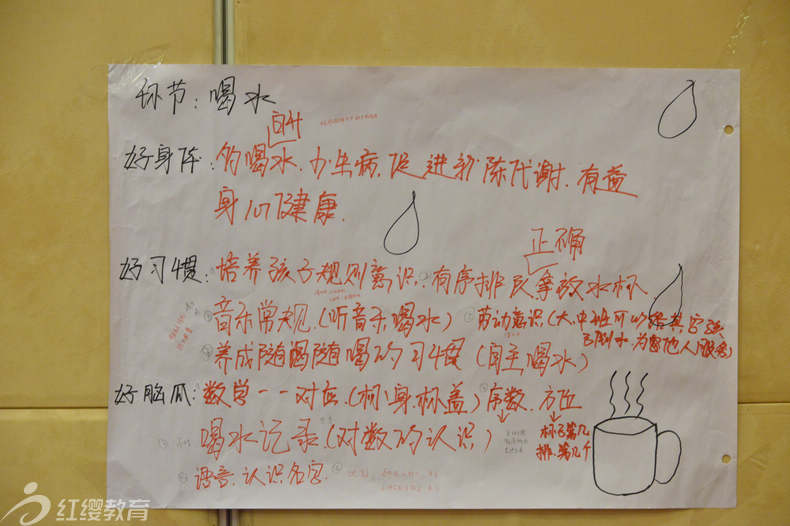 环节：喝水
自价
好身阵：的喝水.少生病.促进新陈代谢.有益
身心健康.
正确
好习惯：培养孩子规则意识：有序排队拿放水杯
音乐常规.(听音乐喝水) 劳动意识(大.中班可以给其它孩
养成随渴随喝的习惯(自主喝水)
为其他人服务)
好脑瓜：数学一一对应.(杯身.杯盖)序数.方位
喝水记录(对数的认识)
杯子第几
排.第几个
语言.认识名字.
红缨教育